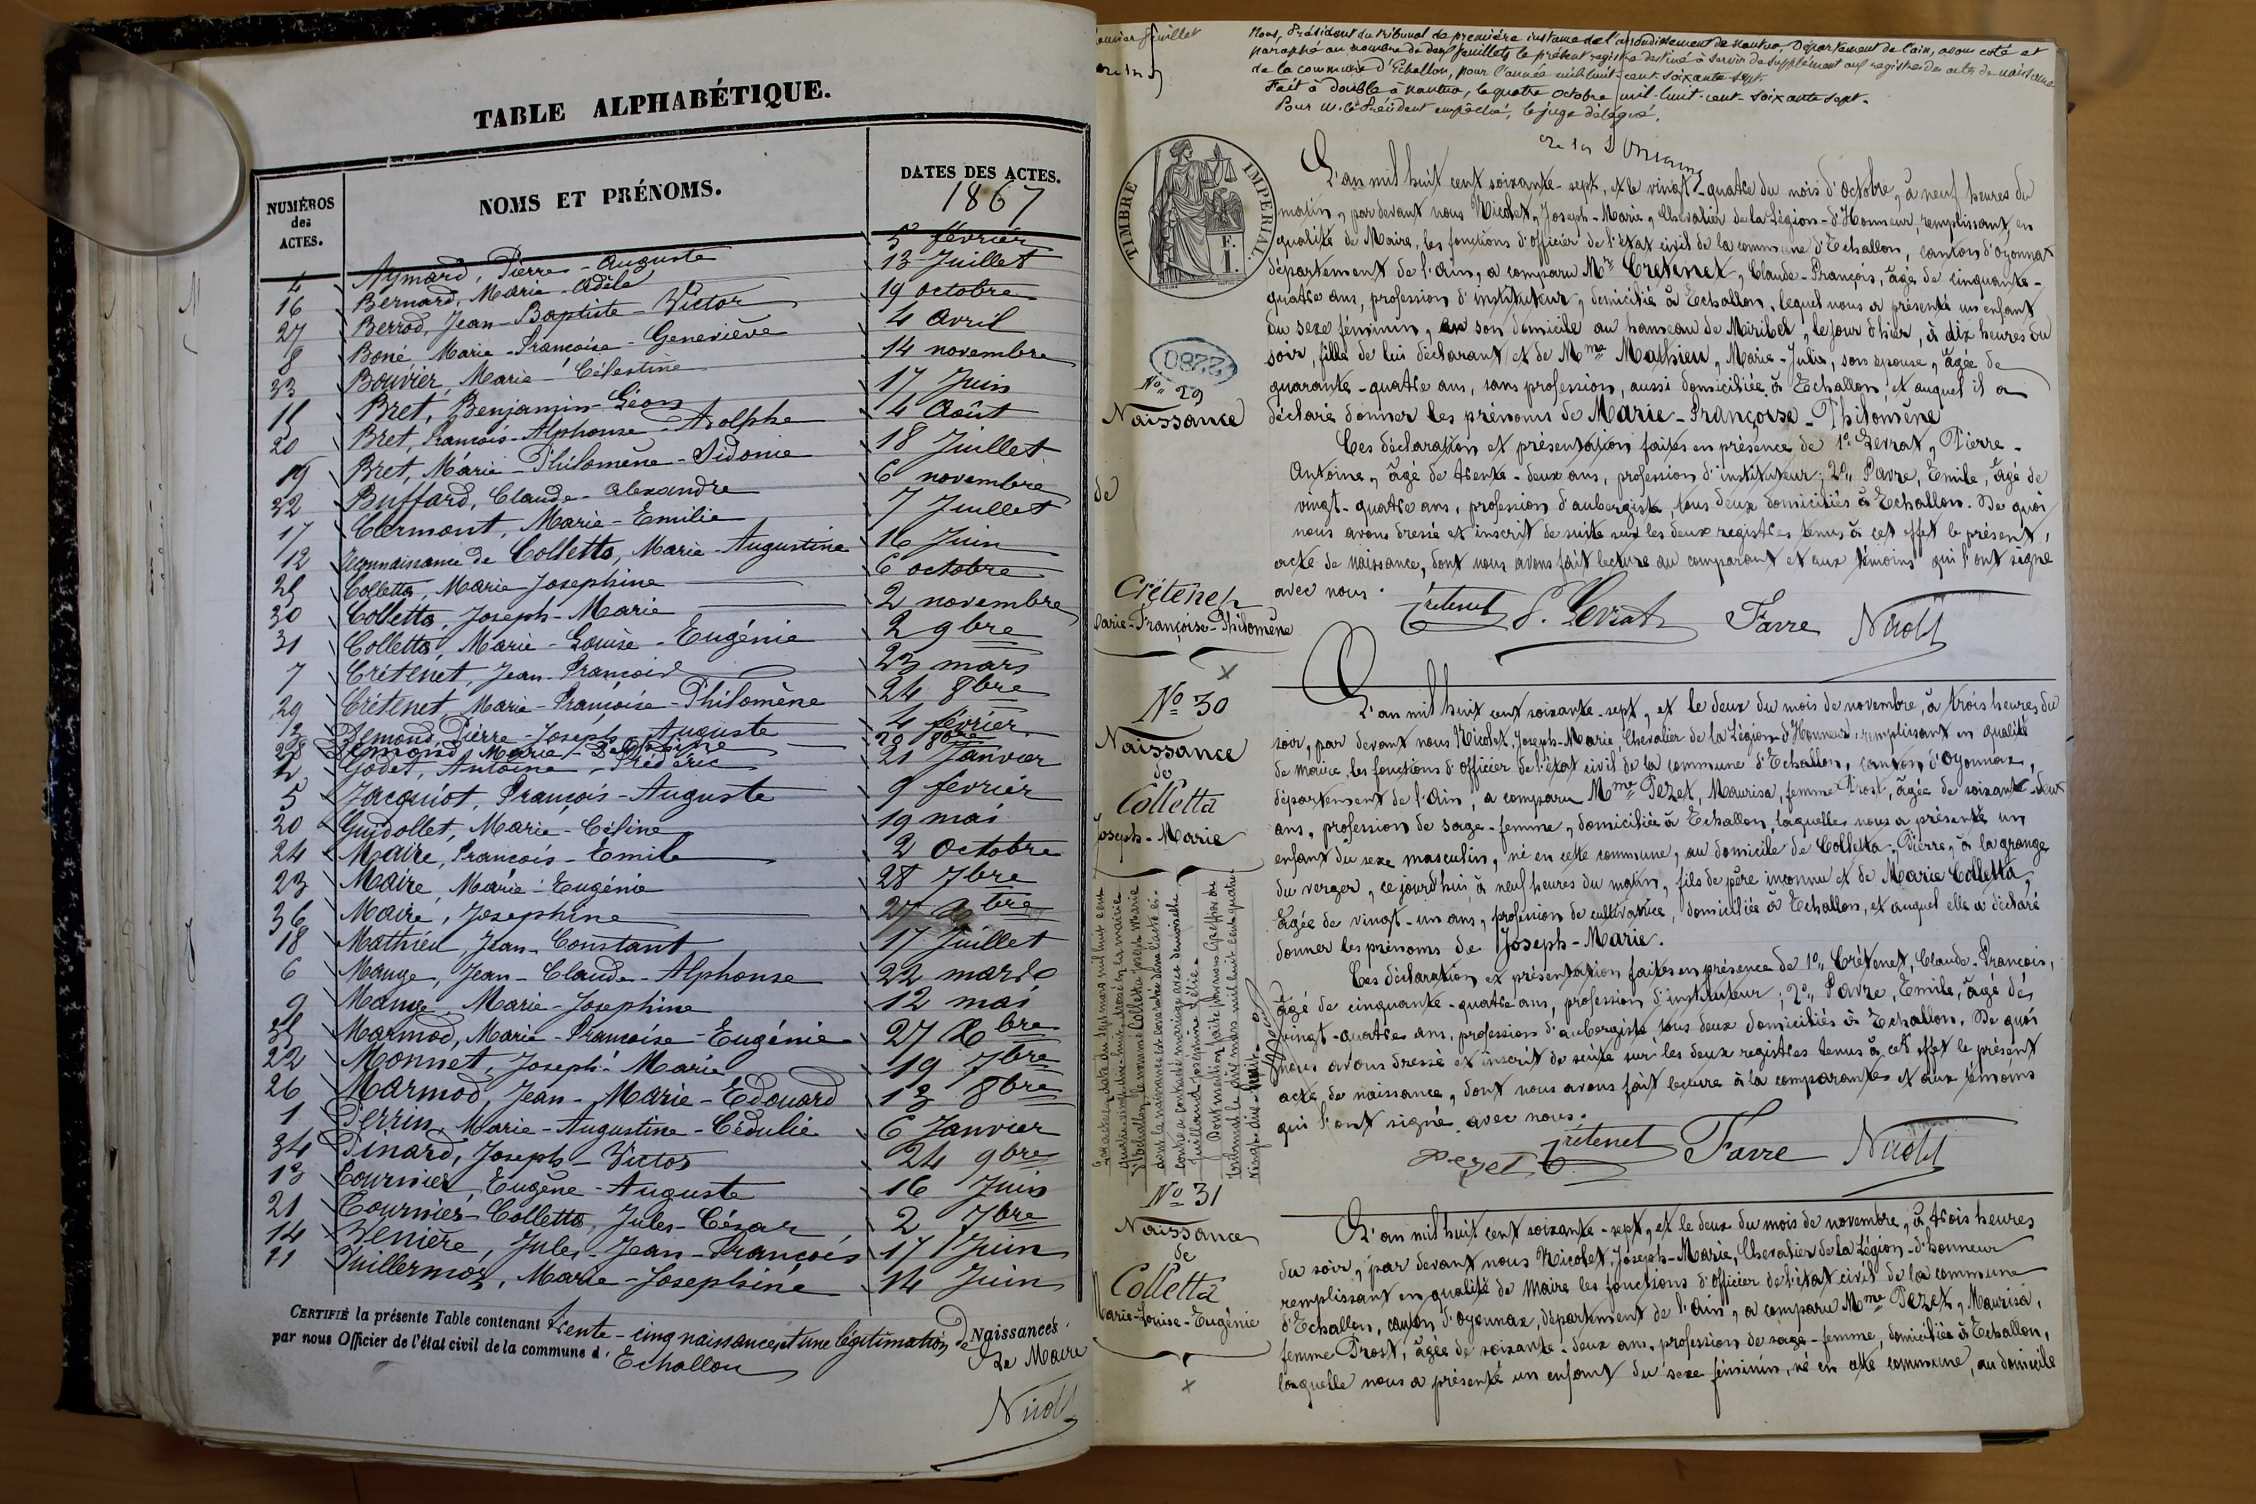 TABLE ALPHABÉTIQUE.
NUMÉROS des ACTES.
NOMS ET PRÉNOMS.
DATES DES ACTES.
1867
4 Aymard, Pierre-Auguste 5 février
16 Bernard, Marie-Adèle 13 Juillet
27 Berrod, Jean-Baptiste-Victor 19 octobre
8 Boné Marie-Françoise-Geneviève 4 Avril
33 Bouvier, Marie-Célestine 14 novembre
Bret, Benjamin-Léon 17 Juin
20 Bret, François-Alphonse-Adolphe 4 Août
19 Bret, Marie-Philomène-Sidonie 18 Juillet
32 Buffard, Claude-Alexandre 6 novembre
17 Clermont, Marie-Emilie 7 Juillet
12 reconnaissance de Colletta, Marie-Augustine 16 Juin
25 Colletta, Marie Josephine 6 octobre
30 Colletta, Joseph-Marie 2 novembre
31 Colletta, Marie-Louise-Eugénie 2 9bre
7 Crétenet, Jean-François 23 mars
29 Crétenet Marie-Françoise-Philomène 24 8bre
Demond, Pierre-Joseph-Auguste 4 février
28 Demond, Marie- 20 8bre
2 Godet, Antoine-Frédéric 21 Janvier
5 Jacquiot, François-Auguste 9 février
Guidollet, Marie-Céline 19 mai
24 Maire, François-Emile 2 Octobre
23 Maire, Marie-Eugénie 28 7bre
36 Maire, Josephine 27 Xbre
18 Mathieu, Jean-Constant 17 Juillet
6 Mauge, Jean-Claude-Alphonse 22 mars
9 Mauge Marie-Josephine 12 mai
35 Marmod, Marie-Françoise-Eugénie 27 Xbre
22 Monnet, Joseph-Marie 19 7bre
26 Marmod, Jean-Marie-Edouard 13 8bre
1 Perrin, Marie-Augustine-Cédulie 6 Janvier
34 Pinard, Joseph-Victor 24 9bre
13 Tournier Eugène-Auguste 16 Juin
21 Tournier-Colletta, Jules-César 2 7bre
14 Veniere, Jules-Jean-François 17 Juin
11 Vuillermoz, Marie-Josephine 14 Juin
CERTIFIÉ la présente Table contenant trente-cinq naissances et une légitimation de Naissances
par nous Officier de l'état civil de la commune d'Echallon
Le Maire
Nicolet
Nous, Président du tribunal de première instance de l'arrondissement de Nantua, Département de l'ain, avons coté et
paraphé au nombre de deux feuillets le présent registre destiné à servir de supplément aux registres des actes de naissance
de la commune d'Echallon, pour l'année mil-huit-cent-soixante-sept.
Fait à double à Nantua, le quatre octobre mil-huit-cent-soixante sept.
Pour M. le Président empêché, le juge délégué.
TIMBRE IMPERIAL
F. I.
2280
No 29
Naissance
de
Crétenet
Marie-Françoise-Philomène
L'an mil huit cent soixante-sept, et le vingt-quatre du mois d'octobre, à neuf heures du
matin, par devant nous Nicolet, Joseph-Marie, Chevalier de la Légion-d'Honneur, remplissant en
qualité de Maire, les fonctions d'officier de l'état civil de la commune d'Echallon, canton d'oyonnax
département de l'Ain, a comparu Mr Crétenet, Claude-François, âgé de cinquante-
quatre ans, profession d'instituteur, domicilié à Echallon, lequel nous a présenté un enfant
du sexe féminin, en son domicile au hameau de Miribel, le jour d'hier, à dix heures du
soir, fille de lui déclarant et de Mme Mathieu, Marie-Julie, son épouse, âgée de
quarante-quatre ans, sans profession, aussi domiciliée à Echallon, et auquel il a
déclaré donner les prénoms de Marie-Françoise-Philomène
Ces déclaration et présentation faites en présence de 1° Levrat, Pierre-
Antoine, âgé de trente-deux ans, profession d'instituteur; 2° Favre, Emile, âgé de
vingt-quatre ans, profession d'aubergiste tous deux domiciliés à Echallon. De quoi
nous avons dressé et inscrit de suite sur les deux registres tenus à cet effet le présent
acte de naissance, dont nous avons fait lecture au comparant et aux témoins qui l'ont signé
avec nous.
Crétenet P. Levrat Favre Nicolet
No 30
Naissance
de
Colletta
Joseph-Marie
L'an mil huit cent soixante-sept, et le deux du mois de novembre, à trois heures du
soir, par devant nous Nicolet, Joseph-Marie, Chevalier de la Légion-d'Honneur remplissant en qualité
de maire les fonctions d'officier de l'état civil de la commune d'Echallon, canton d'Oyonnax,
département de l'Ain, a comparu Mme Pezet, Maurisa, femme Prost, âgée de soixante-deux
ans, profession de sage-femme, domiciliée à Echallon, laquelle nous a présenté un
enfant du sexe masculin, né en cette commune, au domicile de Colletta, Pierre, à la grange
du verger, ce jourd'hui à neuf heures du matin, fils de père inconnu et de Marie Colletta,
âgée de vingt-un ans, profession de cultivatrice, domiciliée à Echallon, et auquel elle a déclaré
donner les prénoms de Joseph-Marie.
Ces déclaration et présentation faites en présence de 1° Crétenet, Claude-François,
âgé de cinquante-quatre ans, profession d'instituteur; 2° Favre, Emile, âgé de
vingt-quatre ans, profession d'aubergiste tous deux domiciliés à Echallon. De quoi
nous avons dressé et inscrit de suite sur les deux registres tenus à cet effet le présent
acte de naissance, dont nous avons fait lecture à la comparante et aux témoins
qui l'ont signé avec nous.
Pezet Crétenet Favre Nicolet
No 31
Naissance
de
Colletta
Marie-Louise-Eugénie
L'an mil huit cent soixante-sept, et le deux du mois de novembre, à trois heures
du soir, par devant nous Nicolet, Joseph-Marie, Chevalier de la Légion-d'honneur
remplissant en qualité de Maire les fonctions d'officier de l'état civil de la commune
d'Echallon, canton d'oyonnax, département de l'Ain, a comparu Mme Pezet, Maurisa,
femme Prost, âgée de soixante-deux ans, profession de sage-femme, domiciliée à Echallon,
laquelle nous a présenté un enfant du sexe féminin, né en cette commune, au domicile